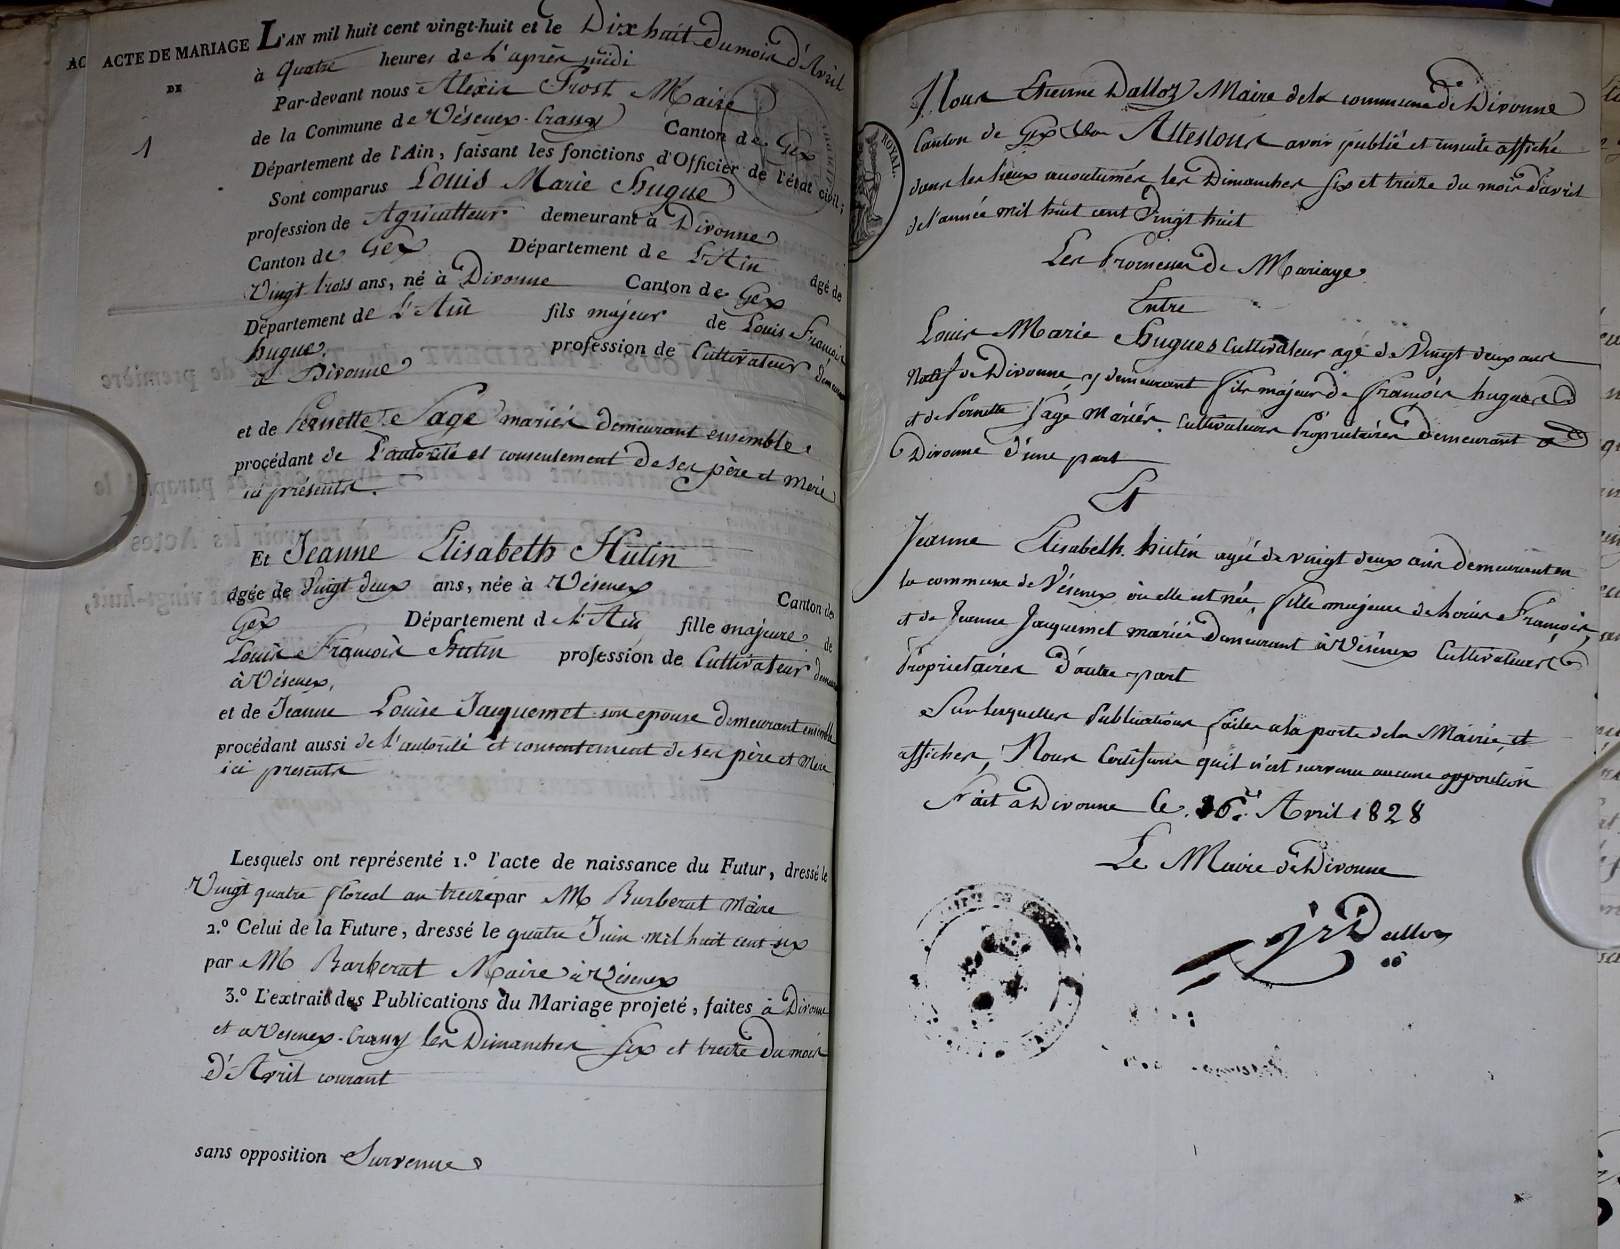 ACTE DE MARIAGE
DE
1
L'AN mil huit cent vingt-huit et le Dix huit du mois d'Avril
à Quatre heures de L'après midi
Par-devant nous Alexis Prost Maire
de la Commune de Véseneх-Crassy Canton de Gex
Département de l'Ain, faisant les fonctions d'Officier de l'état civil;
Sont comparus Louis Marie hugue
profession de Agriculteur demeurant à Divonne
Canton de Gex Département de L'Ain agé de
Vingt trois ans, né à Divonne Canton de Gex
Département de L'Ain fils majeur de Louis François
hugue profession de Cultivateur demeurant
à Divonne
et de Pernette Sage mariés demeurant ensemble
procédant de L'autorité et consentement de ses père et Mere
ici présents.
Et Jeanne Elisabeth Hutin
agée de vingt deux ans, née à Vésenex Canton de
Gex Département de L'Ain fille majeure de
Louis François Hutin profession de Cultivateur demeurant
à Vésenex,
et de Jeanne Louise Jacquemet son epouse demeurant ensemble
procédant aussi de l'autorité et consentement de ses père et Mere
ici presents
Lesquels ont représenté 1.º l'acte de naissance du Futur, dressé le
Vingt quatre floreal an treize par M Barberat Maire
2.º Celui de la Future, dressé le quatre Juin mil huit cent six
par M Barberat Maire à Vésenex
3.º L'extrait des Publications du Mariage projeté, faites à Divonne
et a Vesenex-Crassy les Dimanches six et treize du mois
d'Avril courant
sans opposition Survenue
ROYAL.
Nous Etienne Dalloz Maire de la commune de Divonne
Canton de Gex Attestons avoir publié et ensuite affiché
dans les lieux accoutumés les Dimanches six et treize du mois d'avril
de l'année mil huit cent vingt huit
Les Promesses de Mariage
Entre
Louis Marie Hugues Cultivateur agé de Vingt deux ans
Natif de Divonne y demeurant fils majeur de François hugues
et de Pernette Sage Mariés Cultivateurs Propriétaires demeurant a
Divonne d'une part
Et
Jeanne Elisabeth hutin agée de vingt deux ans demeurant en
la commune de Vésenex où elle est née, fille majeure de Louis François
et de Jeanne Jacquemet mariés Demeurant à Vésenex Cultivateurs
Propriétaires d'autre part
Sur lesquelles Publications faites a la porte de la Mairie et
affiches, Nous Certifions qu'il n'est survenu aucune opposition
Fait a Divonne le 16. Avril 1828
Le Maire de Divonne
Dalloz